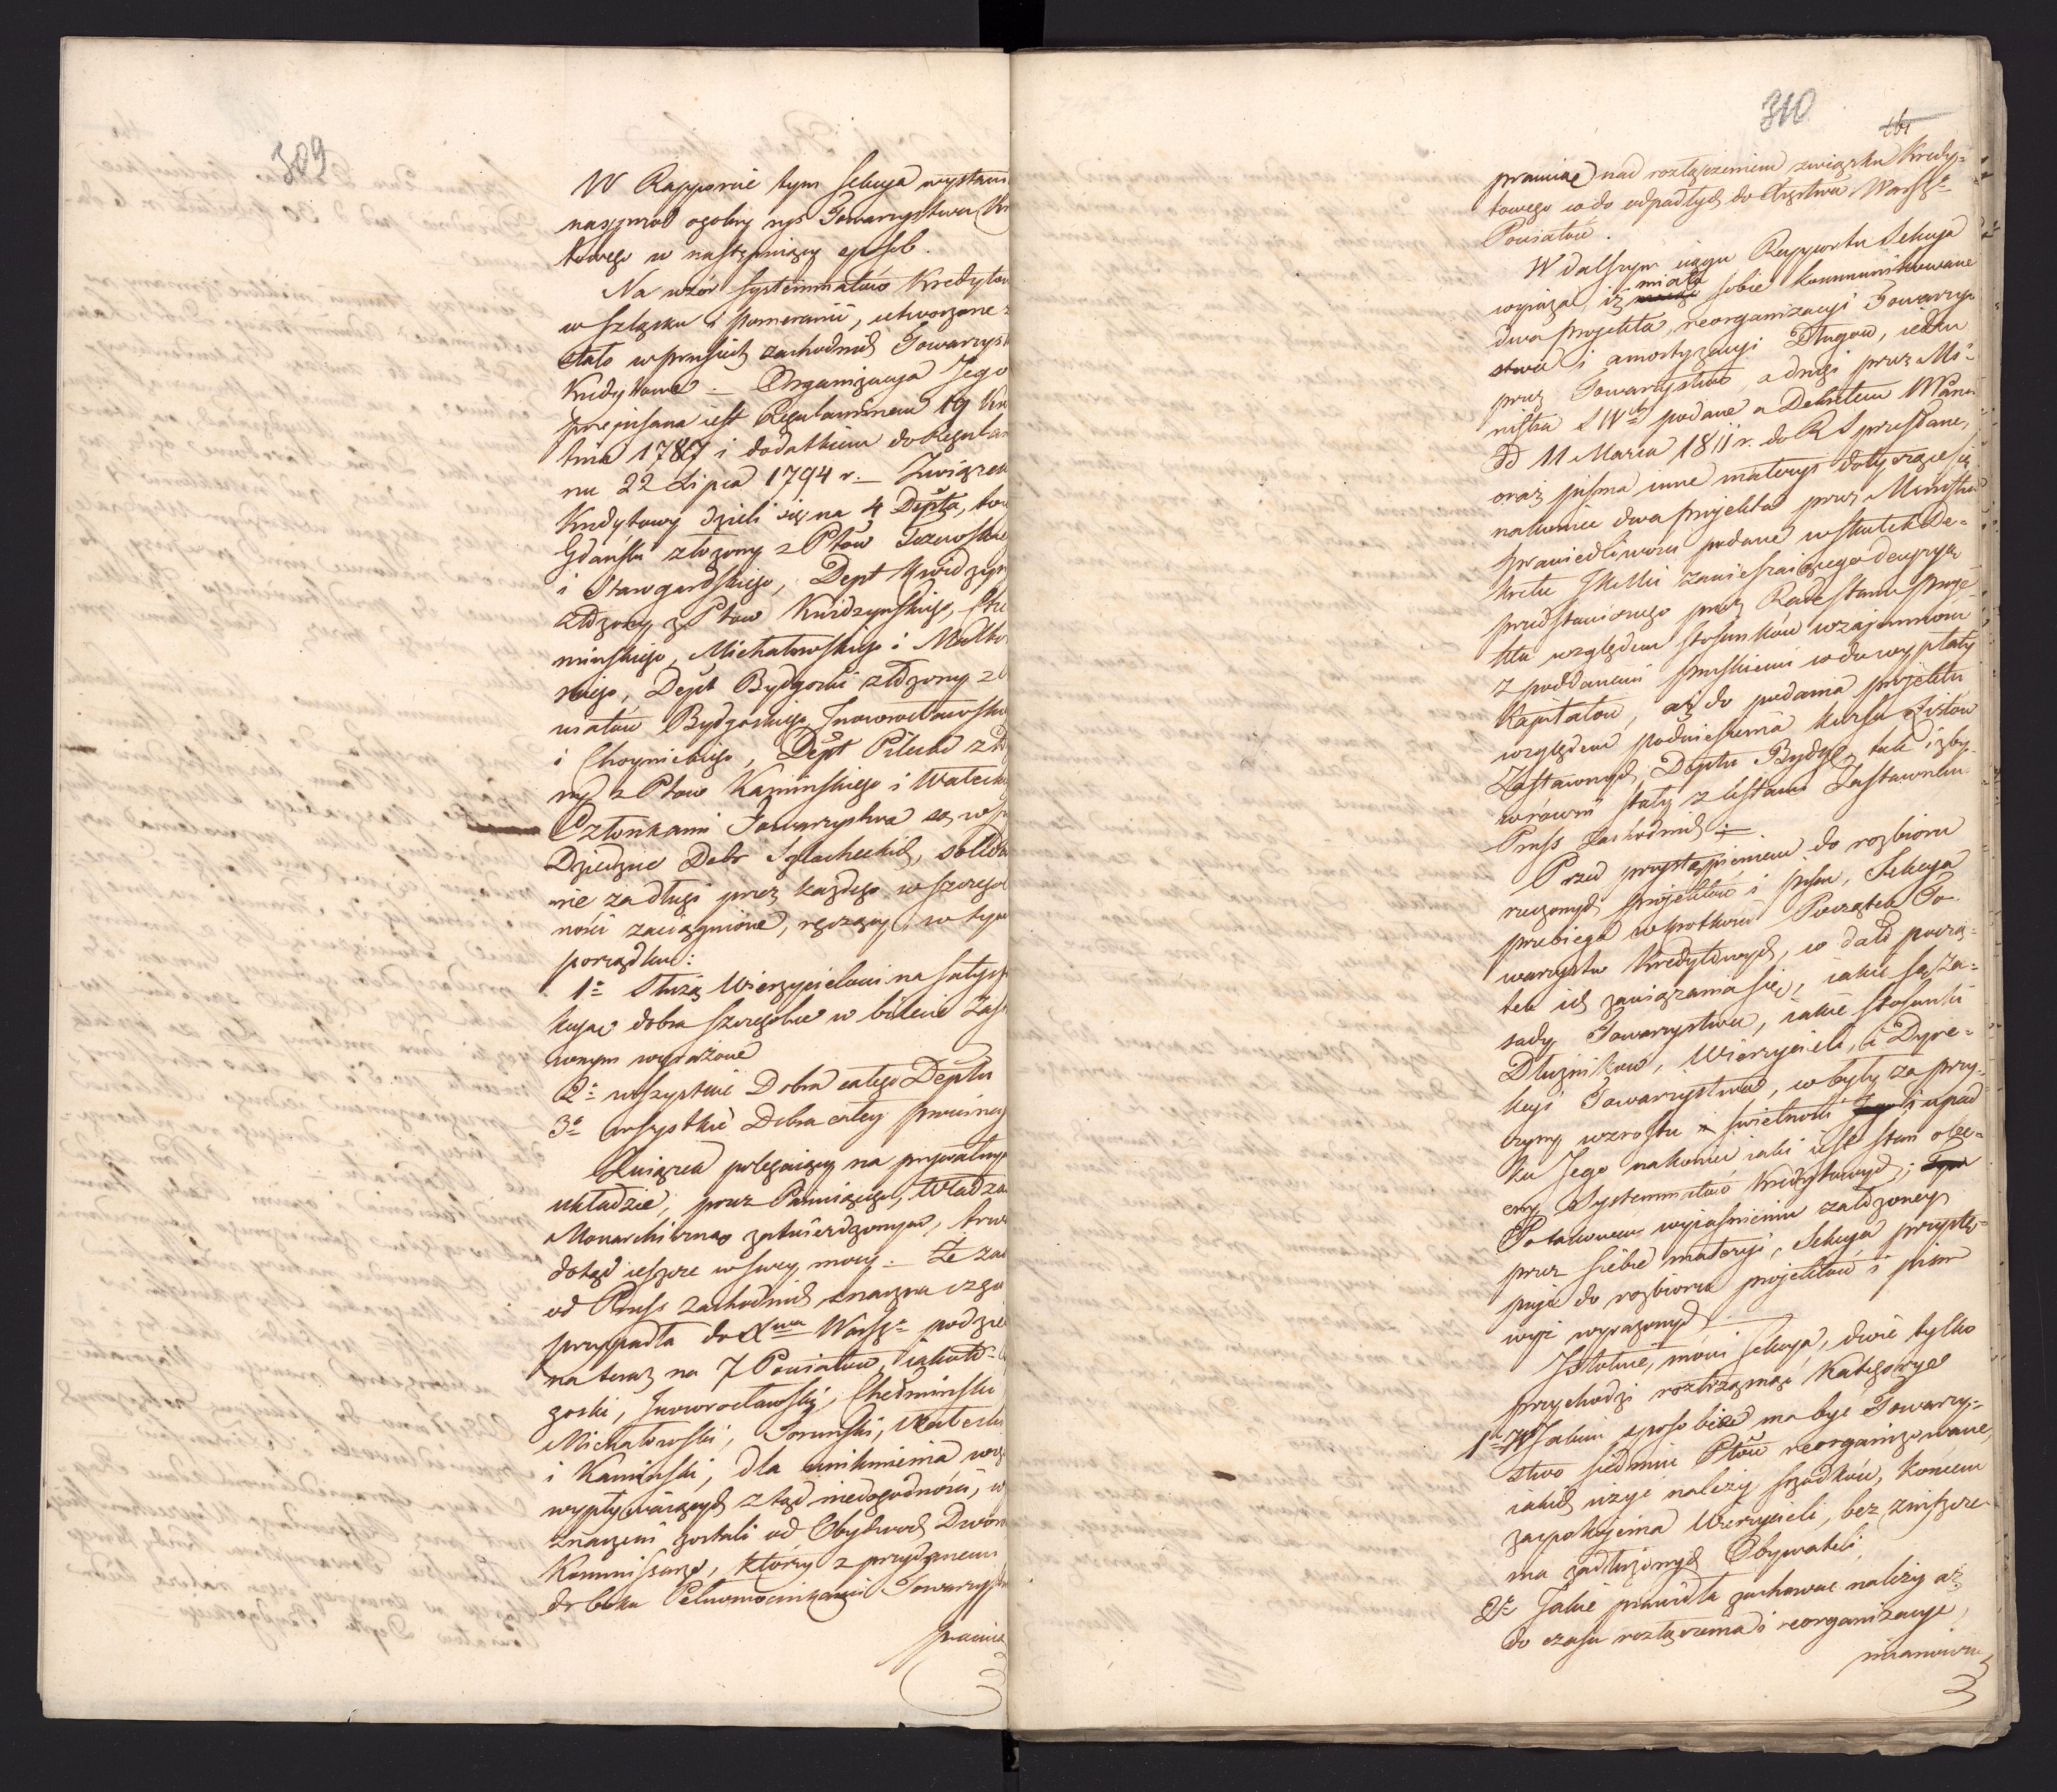 309
W Rapporcie tym Sekcya wystawi
naprzod ogolny rys Towarzystwa Kre
towego w następuiący sposob.
Na wzór Systemmatów Kredytow
w Szląsku i Pomeranii, utworzone z
stało w Prusiech zachodnich Towarzyst
Kredytowe — Organizacya Jego
przepisana iest Regulaminem 19 Kwi
tnia 1787 i dodatkiem do Regulam
nu 22 Lipca 1794 r. — Związek
Kredytowy dzieli się na 4 Dępta, to
Gdański złożony z Ptów Tczewskie
i Starogardskiego, Dept Kwidzyn
złożony z Ptów Kwidzynskiego, Che
mińskiego, Michałowskiego i Malbo
skiego, Dept Bydgoski złożony z P
wiatów Bydgoskiego Inowrocławskie
i Choynickiego, Dept Pilski zło
ny z Ptow Kamińskiego i Wałeck
Członkami Towarzystwa są wsz
Dziedzice Dobr Szlacheckich, solida
nie za długi przez każdego w szczegol
ności zaciągnione, ręczący, w tym
porządku:
1o Służą Wierzycielowi na satysf
kcyą dobra szczegolne w bilecie Zast
wnym wyrażone
2o wszystkie Dobra całego Deptu
3o wszystkie Dobra całey prowincy
Związek polegaiący na prywatnym
układzie, przez Panuiącego, Władzą
Monarchiczną zatwierdzonym, trwa
dotąd ieszcze w swey mocy. — Że zaś
od Pruss zachodnich znaczna częs
przypadła do Xtwa Warszo podzie
na teraz na 7 Powiatow, iakoto
goski, Inowrocławski, Chełmiński
Michałowski, Toruński, Wałecki
i Kamiński, dla uniknienia wsz
wypływaiących ztąd niedogodności, w
znaczeni zostali od Obydwoch Dworow
Kommissarze, którzy z przydanemi
do boku Pełnomocnikami Towarzystw
pracuią
310
161
pracuią nad rozłączeniem związku Kredy=
towego co do odpadłych do Xięstwa Warszo
Powiatow.
W dalszym ciągu Rapportu Sekcya
wyraża, iż miała sobie kommunikowane
dwa projekta, reorganizacyi Towarzy=
stwa i amortyzacyi Długow, ieden
przez Towarzystwo, a drugi przez Mi=
nistra S Wch podane a Dekretem
dd 11 Marca 1811 r. do R S przesłane,
oraz pisma inne materyi dotyczące się
nakoniec dwa projekta przez Ministra
Sprawiedliwosci podane w skutek De=
kretu zawieszaiącego decyzyą
przedstawionego przez Radę Stanu proje=
ktu względem stosunków wzajemnych
z poddanemi Pruskiemi co do wypłaty
Kapitałow, aż do podania projektu
względem podniesienia kursu Listow
Zastawnych Deptu Bydgo, tak iżby
wrówni stały z listami Zastawnemi
Pruss Zachodnich —.
Przed przystąpieniem do rozbioru
rzeczonych projektow i pism, Sekcya
przebiega w krotkosci Początek To=
warzystw Kredytowych, co dało począ=
tek ich zawiązania się, iakie są za=
sady Towarzystwa, iakie stosunki
Dłużnikow, Wierzycieli, i Dyre=
kcyi Towarzystwa, co były za przy=
czyny wzrostu i swietności i upad
ku Jego nakoniec iaki iest stan obe=
cny Systemmatów Kredytowych;
Po takowem wyiaśnieniu założoney
przez siebie materyi, Sekcya przystę=
puie do rozbioru projektów i pism
wyż wyrażonych
Istotnie, mówi Sekcya, dwie tylko
przychodzi roztrząsnąć Kategorye
1o W jakim sposobie ma być Towarzy=
stwo siedmiu Ptów reorganizowane,
iakich użyć należy srodków, końcem
zaspokojenia Wierzycieli, bez zniszcze=
nia zadłużonych Obywateli,
2o Jakie prawidła zachować należy aż
do czasu rozłączenia i reorganizacyi,
mianowicie